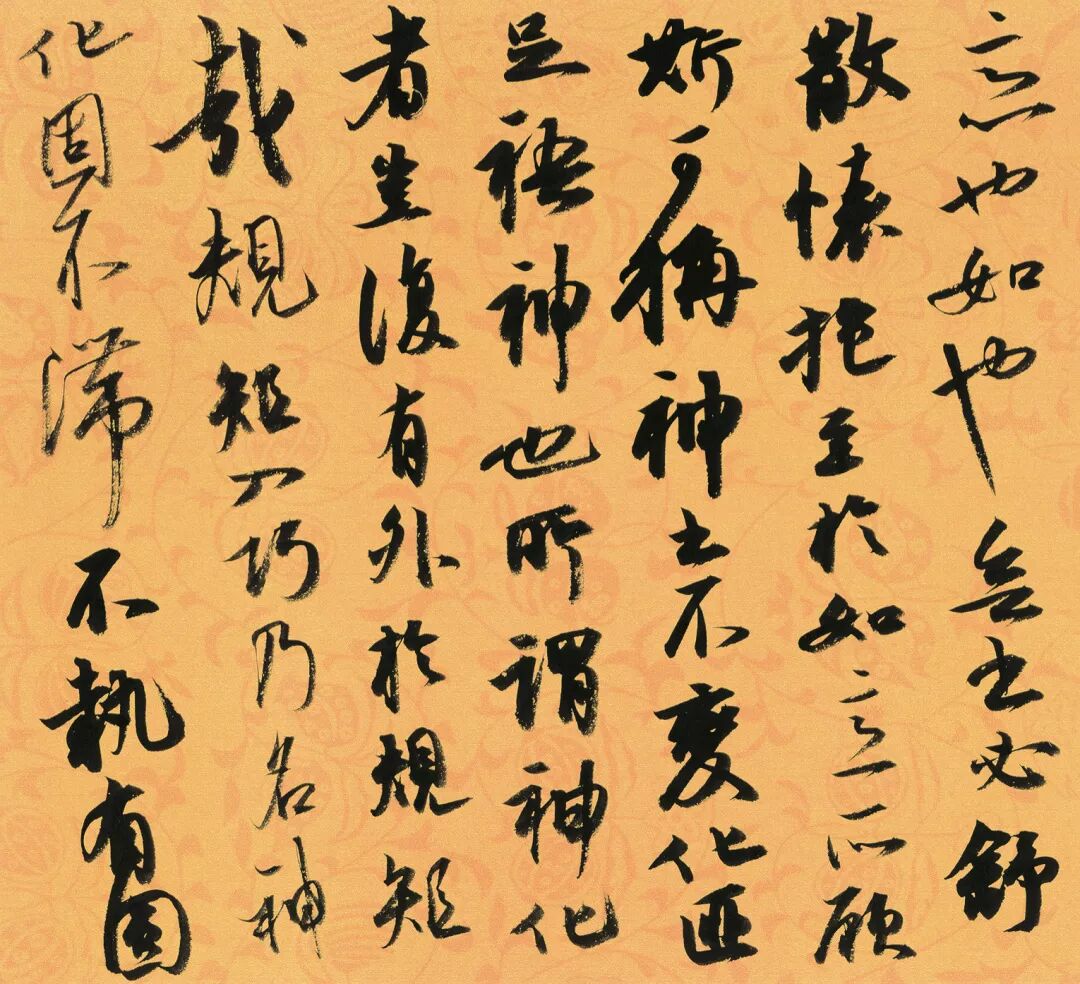 意也如也書必舒
散懷抱至於如意所願
斯可稱神書不變化匪
足語神也所謂神化
者豈復有外於規矩
哉規矩入巧乃名神
化固不滯不執有圓